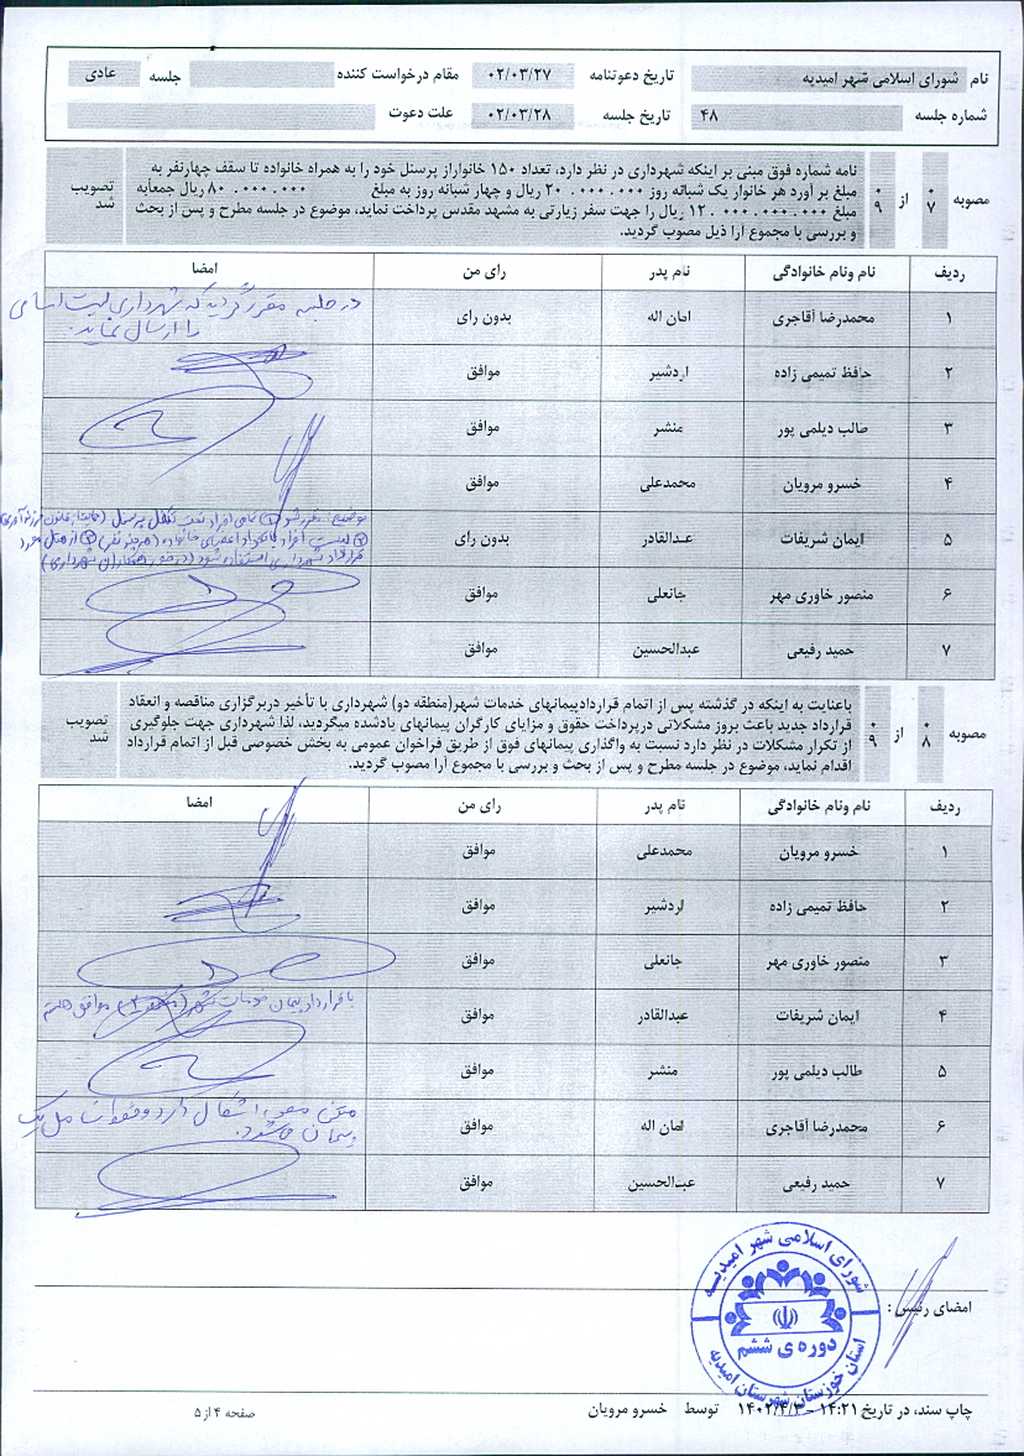 نام شورای اسلامی شهر امیدیه تاریخ دعوتنامه ۰۲/۰۳/۲۷ مقام درخواست کننده جلسه عادی
شماره جلسه ۴۸ تاریخ جلسه ۰۲/۰۳/۲۸ علت دعوت
مصوبه ۰۷ از ۰۹
نامه شماره فوق مبنی بر اینکه شهرداری در نظر دارد، تعداد ۱۵۰ خانواراز پرسنل خود را به همراه خانواده تا سقف چهارنفر به
مبلغ بر آورد هر خانوار یک شبانه روز ۲۰.۰۰۰.۰۰۰ ریال و چهار شبانه روز به مبلغ ۸۰.۰۰۰.۰۰۰ ریال جمعآبه
مبلغ ۱۲.۰۰۰.۰۰۰.۰۰۰ ریال را جهت سفر زیارتی به مشهد مقدس پرداخت نماید، موضوع در جلسه مطرح و پس از بحث
و بررسی با مجموع ارا ذیل مصوب گردید.
تصویب شد
ردیف نام ونام خانوادگی نام پدر رای من امضا
۱ محمدرضا آقاجری امان اله بدون رای
در جلسه مقرر گردید که شهرداری لیست اسامی
را ارسال نماید.
۲ حافظ تمیمی زاده اردشیر موافق
۳ طالب دیلمی پور منشر موافق
۴ خسرو مرویان محمدعلی موافق
۵ ایمان شریفات عبدالقادر بدون رای
توضیح: مقرر شد ۱ تمامی افراد تحت تکفل پرسنل
۲ لیست افراد با تعداد اعضای خانواده (هر چند نفر) ۳ از هتل مورد
قرارداد شهرداری استفاده شود (در خور همکاران شهرداری)
۶ منصور خاوری مهر جانعلی موافق
۷ حمید رفیعی عبدالحسین موافق
مصوبه ۰۸ از ۰۹
باعنایت به اینکه در گذشته پس از اتمام قراردادپیمانهای خدمات شهر(منطقه دو) شهرداری با تأخیر دربرگزاری مناقصه و انعقاد
قرارداد جدید باعث بروز مشکلاتی درپرداخت حقوق و مزایای کارگران پیمانهای یادشده میگردید، لذا شهرداری جهت جلوگیری
از تکرار مشکلات در نظر دارد نسبت به واگذاری پیمانهای فوق از طریق فراخوان عمومی به بخش خصوصی قبل از اتمام قرارداد
اقدام نماید، موضوع در جلسه مطرح و پس از بحث و بررسی با مجموع آرا مصوب گردید.
تصویب شد
ردیف نام ونام خانوادگی نام پدر رای من امضا
۱ خسرو مرویان محمدعلی موافق
۲ حافظ تمیمی زاده اردشیر موافق
۳ منصور خاوری مهر جانعلی موافق
۴ ایمان شریفات عبدالقادر موافق
با قرارداد پیمان خدمات شهر (منطقه ۲) موافق هستم
۵ طالب دیلمی پور منشر موافق
۶ محمدرضا آقاجری امان اله موافق
متن مصوبه اشکال دارد
پیمان می‌شود.
۷ حمید رفیعی عبدالحسین موافق
شورای اسلامی شهر امیدیه
دوره ی ششم
استان خوزستان شهرستان امیدیه
امضای رئیس :
چاپ سند، در تاریخ ۱۴:۲۱ - ۱۴۰۲/۴/۳ توسط خسرو مرویان
صفحه ۴ از ۵